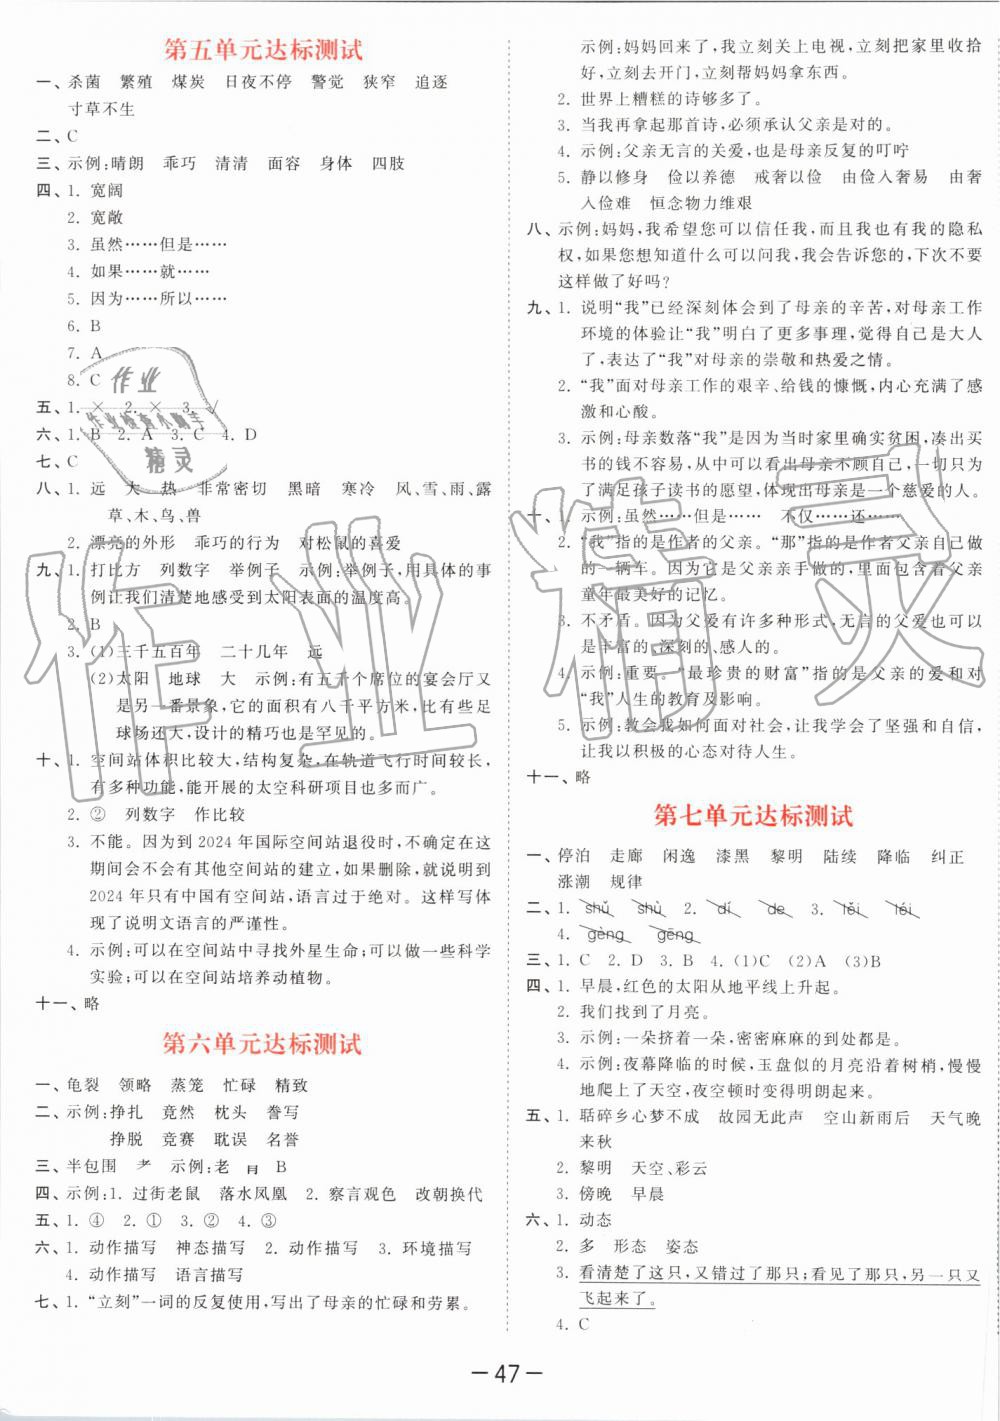 第五单元达标测试
一、杀菌 繁殖 煤炭 日夜不停 警觉 狭窄 追逐
寸草不生
二、C
三、示例:晴朗 乖巧 清清 面容 身体 四肢
四、1. 宽阔
2. 宽敞
3. 虽然……但是……
4. 如果……就……
5. 因为……所以……
6. B
7. A
8. C
五、1. × 2. × 3. √
六、1. B 2. A 3. C 4. D
七、C
八、1. 远 大 热 非常密切 黑暗 寒冷 风、雪、雨、露
草、木、鸟、兽
2. 漂亮的外形 乖巧的行为 对松鼠的喜爱
九、1. 打比方 列数字 举例子 示例:举例子,用具体的事
例让我们清楚地感受到太阳表面的温度高。
2. B
3. (1)三千五百年 二十几年 远
(2)太阳 地球 大 示例:有五千个席位的宴会厅又
是另一番景象,它的面积有八千平方米,比有些足
球场还大,设计的精巧也是罕见的。
十、1. 空间站体积比较大,结构复杂,在轨道飞行时间较长,
有多种功能,能开展的太空科研项目也多而广。
2. ② 列数字 作比较
3. 不能。因为到2024年国际空间站退役时,不确定这
期间会不会有其他空间站的建立,如果删除,就表明
2024年只有中国有空间站,语言过于绝对。这样写体
现了说明文语言的严谨性。
4. 示例:可以在空间站中寻找外星生命;可以做一些科学
实验;可以在空间站培养动植物。
十一、略
第六单元达标测试
一、龟裂 领略 蒸笼 忙碌 精致
二、示例:挣扎 竟然 枕头 誊写
挣脱 竞赛 耽误 名誉
三、半包围 耂 示例:老 肓 B
四、示例:1. 过街老鼠 落水凤凰 2. 察言观色 改朝换代
五、1. ④ 2. ① 3. ② 4. ③
六、1. 动作描写 神态描写 2. 动作描写 3. 环境描写
4. 动作描写 语言描写
七、1. “立刻”一词的反复使用,写出了母亲的忙碌和劳累。
示例:妈妈回来了,我立刻关上电视,立刻把家里收拾
好,立刻去开门,立刻帮妈妈拿东西。
2. 世界上糟糕的诗够多了。
3. 当我再拿起那首诗,必须承认父亲是对的。
4. 示例:父亲无言的关爱,也是母亲反复的叮咛
5. 静以修身 俭以养德 戒奢以俭 由俭入奢易 由奢
入俭难 恒念物力维艰
八、示例:妈妈,我希望您可以信任我,而且我也有我的隐私
权,如果您想知道什么可以问我,我会告诉您的,下次不要
这样做了好吗?
九、1. 说明“我”已经深刻体会到了母亲的辛苦,对母亲工作
环境的体验让“我”明白了更多事理,觉得自己是大人
了,表达了“我”对母亲的崇敬和热爱之情。
2. “我”面对母亲工作的艰辛、给钱的慷慨,内心充满了感
激和心酸。
3. 示例:母亲数落“我”是因为当时家里确实贫困,凑出买
书的钱不容易。但从中可以看出母亲不顾自己,只是为
了满足孩子读书的愿望,体现出母亲是一个慈爱的人。
十、1. 示例:虽然……但是…… 不仅……还……
2. “我”指的是作者的父亲。“那”指的是作者父亲自己做
的一辆车。因为它是父亲亲手做的,里面包含着父亲
童年最美好的记忆。
3. 不矛盾。因为父爱有许多种形式,无声的父爱也可以
是丰富的、深刻的、感人的。
4. 示例:重要。“最珍贵的财富”指的是父亲的爱和对
“我”人生的教育及影响。
5. 示例:教会我如何面对社会,让我学会了坚强和自信,
让我以积极的心态对待人生。
十一、略
第七单元达标测试
一、停泊 走廊 闲逸 漆黑 黎明 陆续 降临 纠正
涨潮 规律
二、1. shǔ shù 2. dí de 3. lěi léi
4. gèng gēng
三、1. C 2. D 3. B 4. (1)C (2)A (3)B
四、1. 早晨,红色的太阳从地平线上升起。
2. 我们找到了月亮。
3. 示例:一朵挤着一朵,密密麻麻的到处都是。
4. 示例:夜幕降临的时候,玉盘似的月亮沿着树梢,慢慢
地爬上了天空,夜空顿时变得明朗起来。
五、1. 聒碎乡心梦不成 故园无此声 空山新雨后 天气晚
来秋
2. 黎明 天空、彩云
3. 傍晚 早晨
六、1. 动态
2. 多 形态 姿态
3. 看清楚了这只,又错过了那只;看见了那只,另一只又
飞起来了。
4. C
— 47 —
作业
作业检查小帮手
精灵
作业精灵